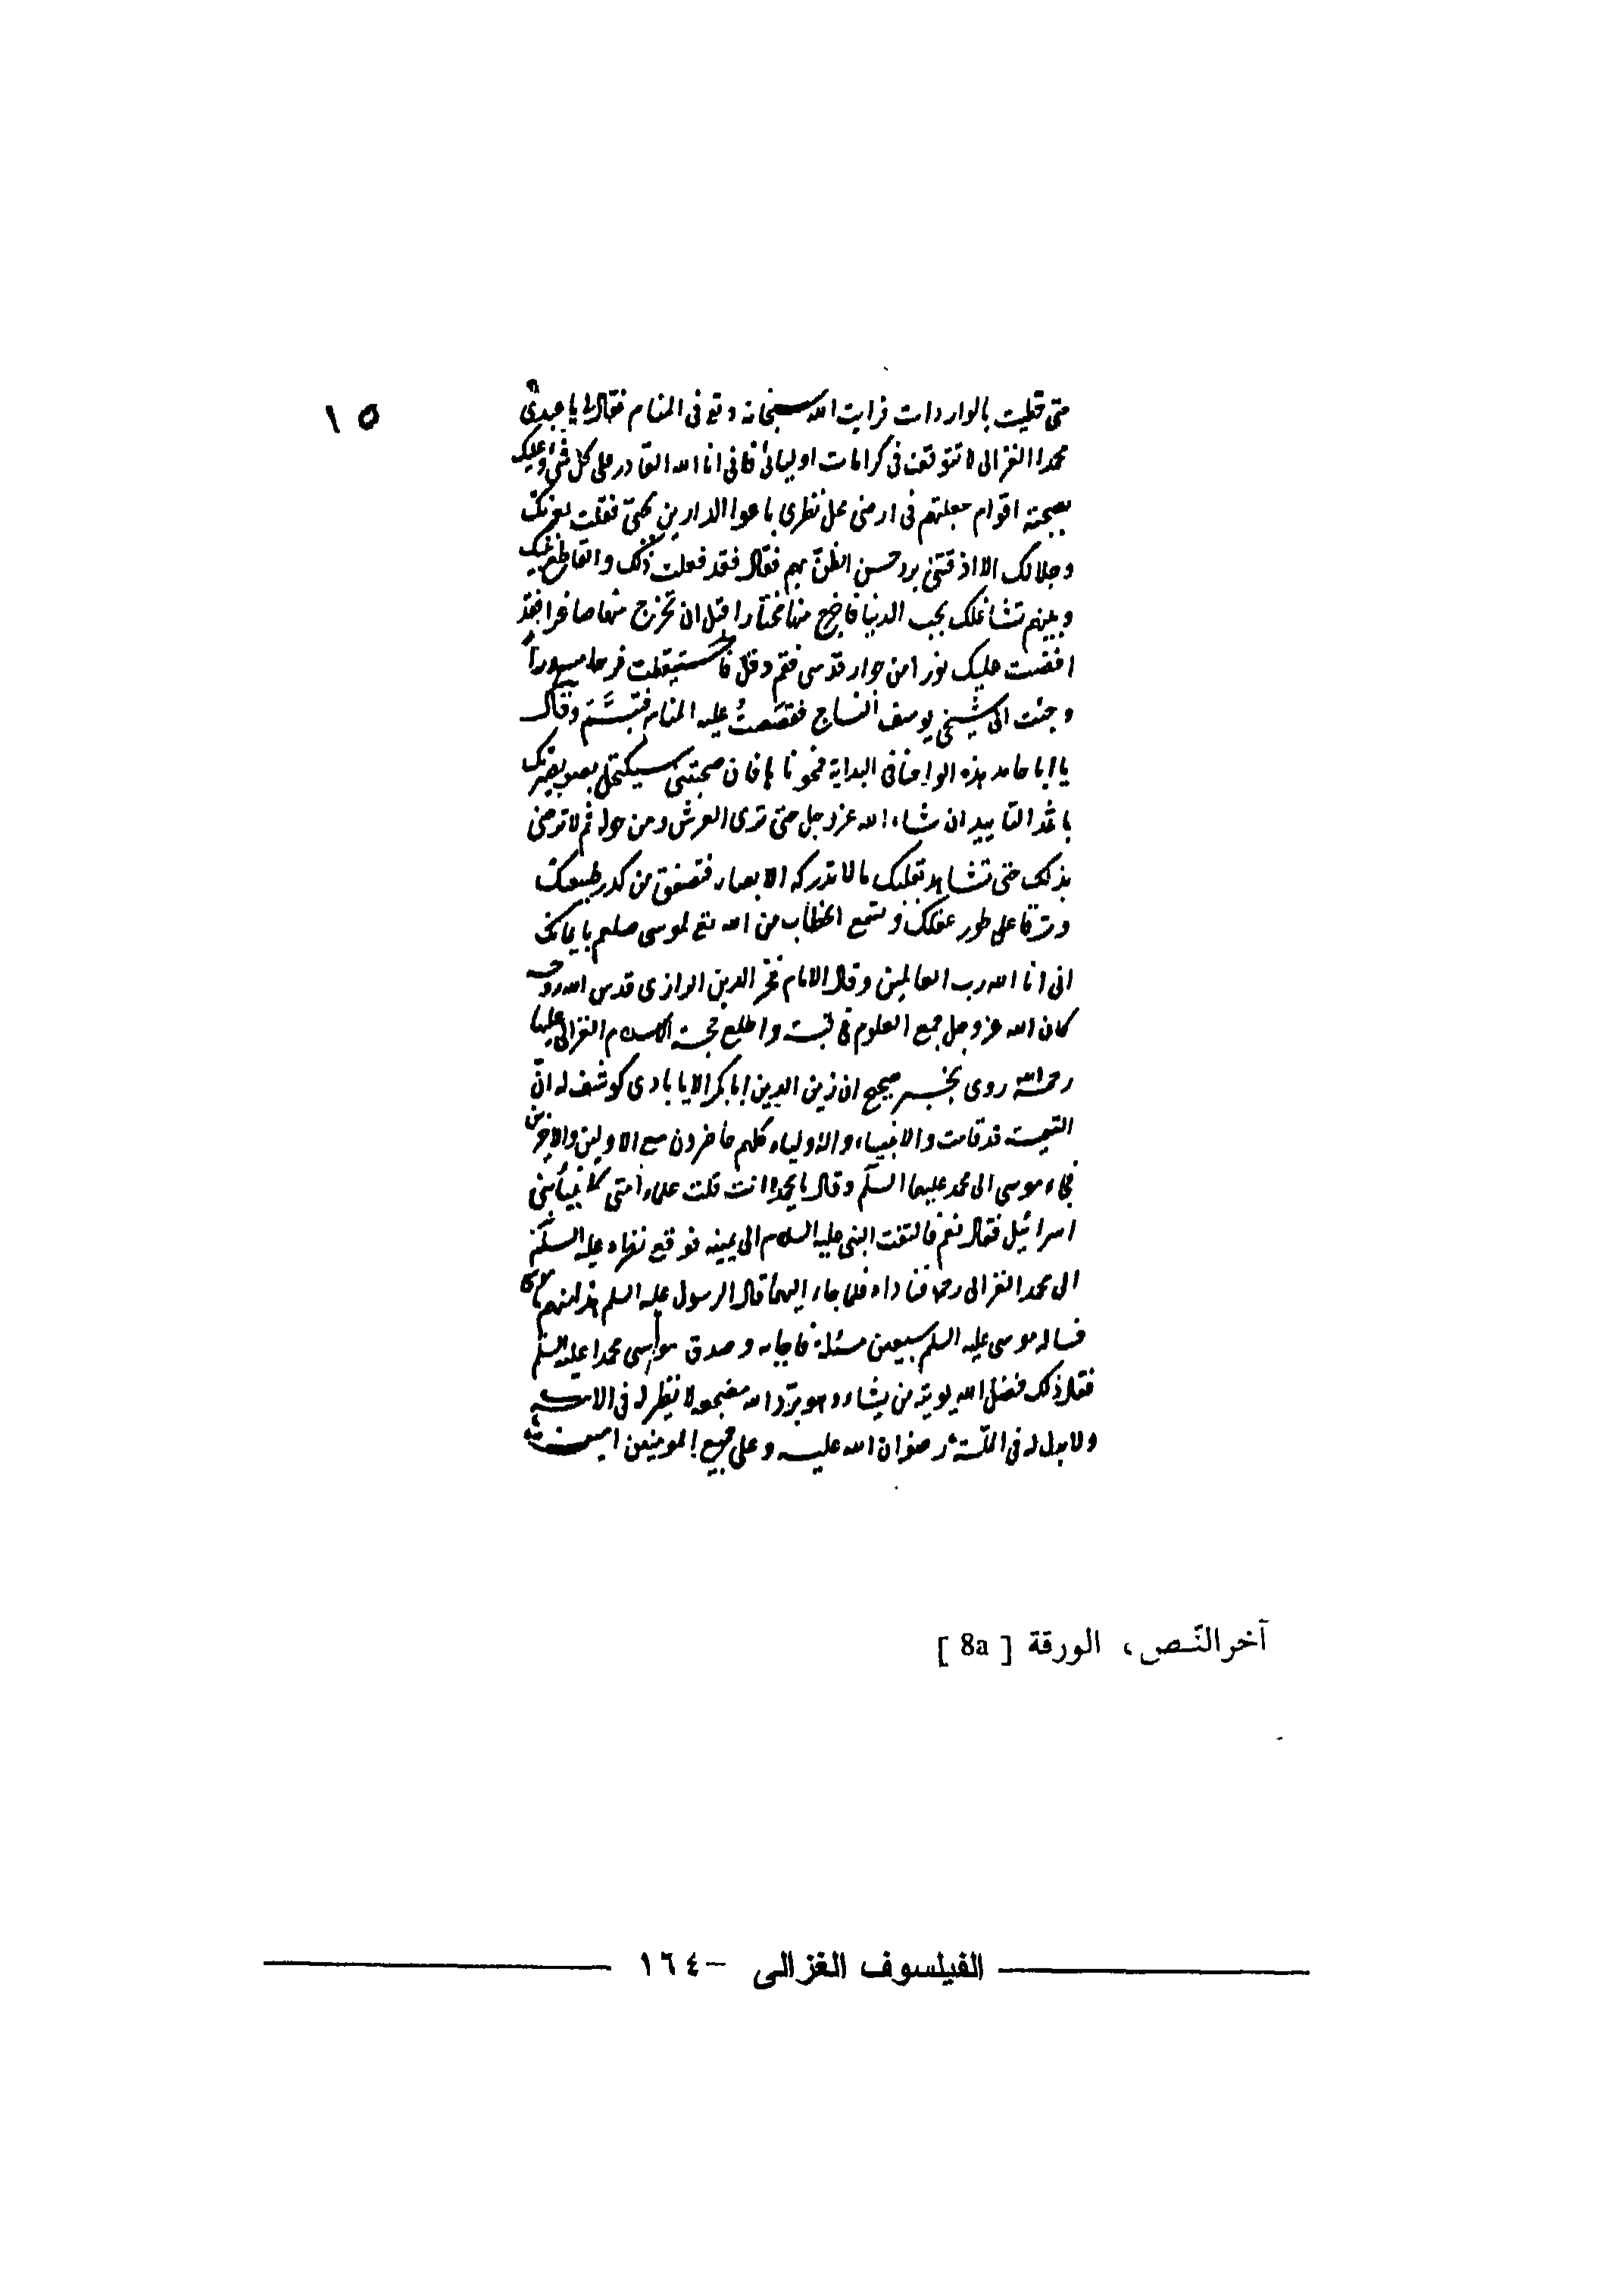 حتى حظيت بالواردات فرايت الله سبحانه وتع فى المنام فقال لى يا عبدى
محمدا الغزالى لا تتوقف فى كرامات اوليائى فانى انا الله القادر على كل شئ وعليك
بصحبة اقوام جعلتهم فى ارضى محل نظرى باعوا الدارين بحبى فقلت بعزتك
وجلالك الا اذقتنى برد حسن الظن بهم فقال فقد فعلت ذلك والقاطع بينك
وبينهم تشاغلك بحب الدنيا فاخرج منها مختارا قبل ان تخرج منها صاغرا فقد
افضت عليك نورا من جوار قدسى فقم وقل فاستيقظت فرحا مسرورا
وجئت الى شيخى يوسف النساج فقصصت عليه المنام فتبسم وقال
يا ابا حامد هذه الواحنا فى البداية فمحوناها فان صحبتنى سيكتحل بصر بصيرتك
باثمد التاييد ان شاء الله عز وجل حتى ترى العرش ومن حوله ثم لا ترضى
بذلك حتى تشاهد بقلبك ما لا تدركه الابصار فتصفو من كدر طبيعتك
وترقا على طور عقلك وتسمع الخطاب من الله تع لموسى صلعم
انى انا الله رب العالمين وقال الامام فخر الدين الرازى قدس الله روحه
كان الله عز وجل جمع العلوم فى قبة واطلع حجة الاسلام الغزالى عليها
رحمه الله روى بخبر صحيح ان زين الدين ابا بكر الايابادى كوشف له ان
القيمة قد قامت والانبياء والاولياء كلهم حاضرون مع الاولين والاخرين
فجاء موسى الى محمد عليهما السلم وقال يا محمد انت قلت علماء امتى كانبياء بنى
اسرائيل فقال نعم فالتفت النبى عليه السلام الى يمينه فوقع نظره عليه السلم
الى محمد الغزالى رحمه فناداه فلما جاء اليهما قال الرسول عليه السلم هذا منهم
فساله موسى عليه السلم سبعين مسئلة فاجابه وصدق موسى محمدا عليه السلم
فقال ذلك فضل الله يوتيه من يشاء وهو برد الله مضجعه لا نظير له فى الامة
ولا بدل له فى الملة رضوان الله عليه وعلى جميع المومنين امين
١٥
آخر النّص، الورقة [ 8a ]
الفيلسوف الغزالى -١٦٤